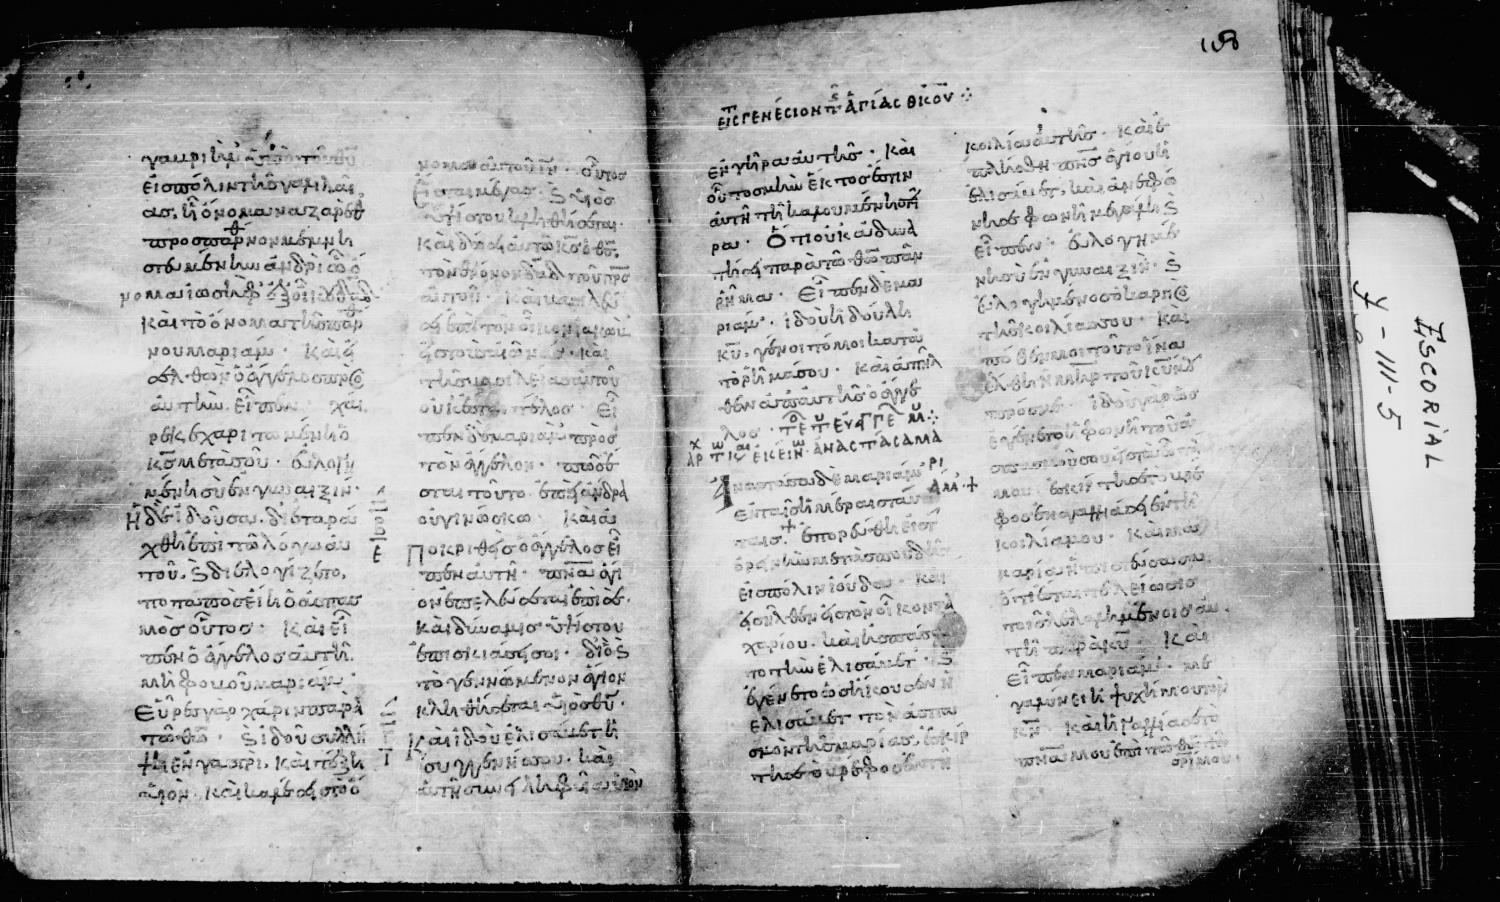 γαβριὴλ ὑπὸ τοῦ θῦ
εἰς πόλιν τῆς γαλιλαί
ας, ἡ ὄνομα ναζαρὲθ
πρὸς παρθνον μεμνη
στευμένην ἀνδρὶ ὧ ὄ
νομα ἰωσὴφ ἐξ οἴκου δαδ
καὶ τὸ ὄνομα τῆς παρ
νου μαριάμ · καὶ εἰ
σελθὼν ὁ ἄγγελος πρὸς
αὐτὴν εἶπεν · χαῖ
ρε κεχαριτωμένη ὁ
κς μετὰ σοῦ · εὐλογη
μένη σὺ ἐν γυναιξίν ·
Ἡ δὲ ἰδοῦσα, διεταρά
χθη ἐπὶ τῶ λόγω αὐ
τοῦ. καὶ διελογίζετο,
ποταπὸς εἴη ὁ ἀσπασ
μὸς οὗτος · καὶ εἶ
πεν ὁ ἄγγελος αὐτῆ.
μὴ φοβοῦ μαριάμ ·
Εὗρες γὰρ χάριν παρὰ
τῶ θῶ · καὶ ἰδοὺ συλλή
ψη ἐν γαστρὶ, καὶ τέξη
υἱὸν · καὶ καλέσεις τὸ ὄ
νομα αὐτοῦ ιν · οὗτος
ἔσται μέγας · καὶ υἱὸς
ὑψίστου κληθήσεται ·
καὶ δώσει αὐτῶ κς ὁ θς,
τὸν θρόνον δαδ τοῦ πρς
αὐτοῦ · καὶ βασιλεύ
σει ἐπὶ τὸν οἶκον ἰακὼβ
εἰς τοὺς αἰῶνας · καὶ
τῆς βασιλείας αὐτοῦ
οὐκ ἔσται τέλος · Εἶ
πεν δὲ μαριὰμ πρὸς
τὸν ἄγγελον · πῶς ἔ
σται τοῦτο · ἐπεὶ ἄνδρα
οὐ γινώσκω · καὶ ἀ
ποκριθεὶς ὁ ἄγγελος εἶ
πεν αὐτῆ · πνα ἅγι
ον ἐπελεύσεται ἐπὶ σέ ·
καὶ δύναμις ὑψίστου
ἐπισκιάσει σοι · διὸ καὶ
τὸ γεννώμενον ἅγιον
κληθήσεται υἱὸς θῦ ·
Καὶ ἰδοὺ ἐλισάβετ ἡ
συγγενής σου · καὶ
αὐτὴ συνειληφυῖα υἱὸν
εἰς γενέσιον τῆς ἁγίας θκου
ἐν γήρα αὐτῆς · καὶ
οὗτος μὴν ἕκτος ἐστὶν
αὐτῆ τῆ καλουμένη στεί
ρα · Ὅτι οὐκ ἀδυνα
τήσει παρὰ τῶ θῶ πᾶν
ῥῆμα · Εἶπεν δὲ μα
ριάμ · ἰδοὺ ἡ δούλη
κῦ, γένοιτό μοι κατὰ
τὸ ῥῆμά σου · καὶ ἀπῆλ
θεν ἀπ᾽ αὐτῆς ὁ ἄγγε
λος ·
ἀναστᾶσα μα
ριάμ +
Ἀναστᾶσα δὲ μαριὰμ
ἐν ταῖς ἡμέραις ταύ
ταις, ἐπορεύθη εἰς τὴν
ὀρεινὴν μετὰ σπουδῆς
εἰς πόλιν ἰούδα · καὶ
εἰσῆλθεν εἰς τὸν οἶκον ζα
χαρίου. καὶ ἠσπάσα
το τὴν ἐλισάβετ · καὶ
ἐγένετο ὡς ἤκουσεν ἡ
ἐλισάβετ τὸν ἀσπα
σμὸν τῆς μαρίας, ἐσκίρ
τησε τὸ βρέφος ἐν τῆ
κοιλία αὐτῆς · καὶ ἐ
πλήσθη πνς ἁγίου ἡ
ἐλισάβετ, καὶ ἀνεφώ
νησε φωνῆ μεγάλη καὶ
εἶπεν · εὐλογημέ
νη σὺ ἐν γυναιξὶν · καὶ
εὐλογημένος ὁ καρπὸς
τῆς κοιλίας σου · καὶ
πόθεν μοι τοῦτο ἵνα
ἔλθη ἡ μηρ τοῦ κυ μου
πρός με · ἰδοὺ γὰρ ὡς
ἐγένετο ἡ φωνὴ τοῦ ἀ
σπασμοῦ σου εἰς τὰ ὦτά
μου · ἐσκίρτησε τὸ βρέ
φος ἐν ἀγαλλιάσει ἐν τῆ
κοιλία μου · καὶ μα
καρία ἡ πιστεύσασα
ὅτι ἔσται τελείωσις
τοῖς λελαλημένοις αὐ
τῆ παρὰ κῦ · Καὶ
εἶπεν μαριάμ · με
γαλύνει ἡ ψυχή μου τὸν
κν · καὶ ἠγαλλίασε τὸ
πνα μου ἐπὶ τῶ θῶ τῶ
σρι μου ·
ESCORIAL
Y-III-5